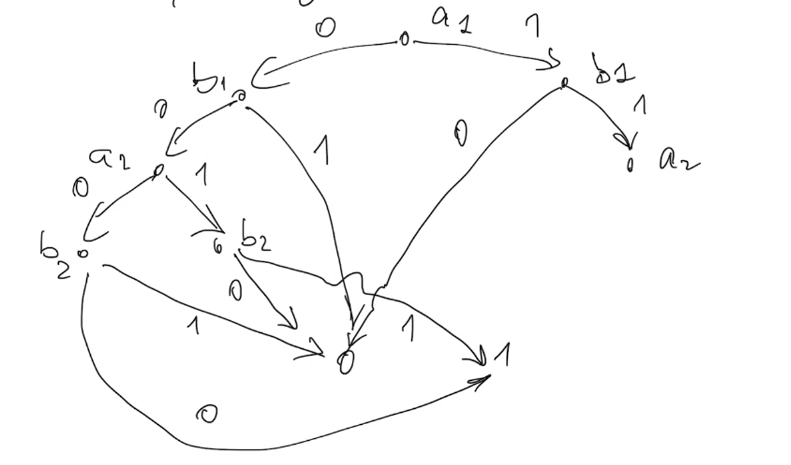 0 a1 1
b1 b1
0 1 0 1
a2 a2
0 1
b2 b2
0 1 1
0 1
0